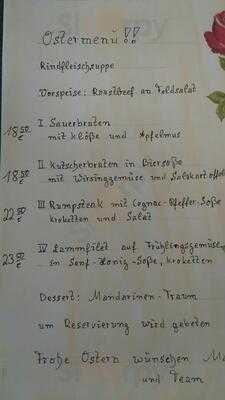 Ostermenü !!
Rindfleischsuppe
Vorspeise: Roastbeef an Feldsalat
I Sauerbraten
18,50 € mit Klöße und Apfelmus
II Kutscherbraten in Biersoße
18,50 € mit Wirsinggemüse und Salzkartoffel
III Rumpsteak mit Cognac-Pfeffer-Soße
22,50 kroketten und Salat
IV Lammfilet auf Frühlingsgemüse
23,50 € in Senf-Honig-Soße, kroketten
Dessert: Mandarinen-Traum
um Reservierung wird gebeten
Frohe Ostern wünschen
und Team